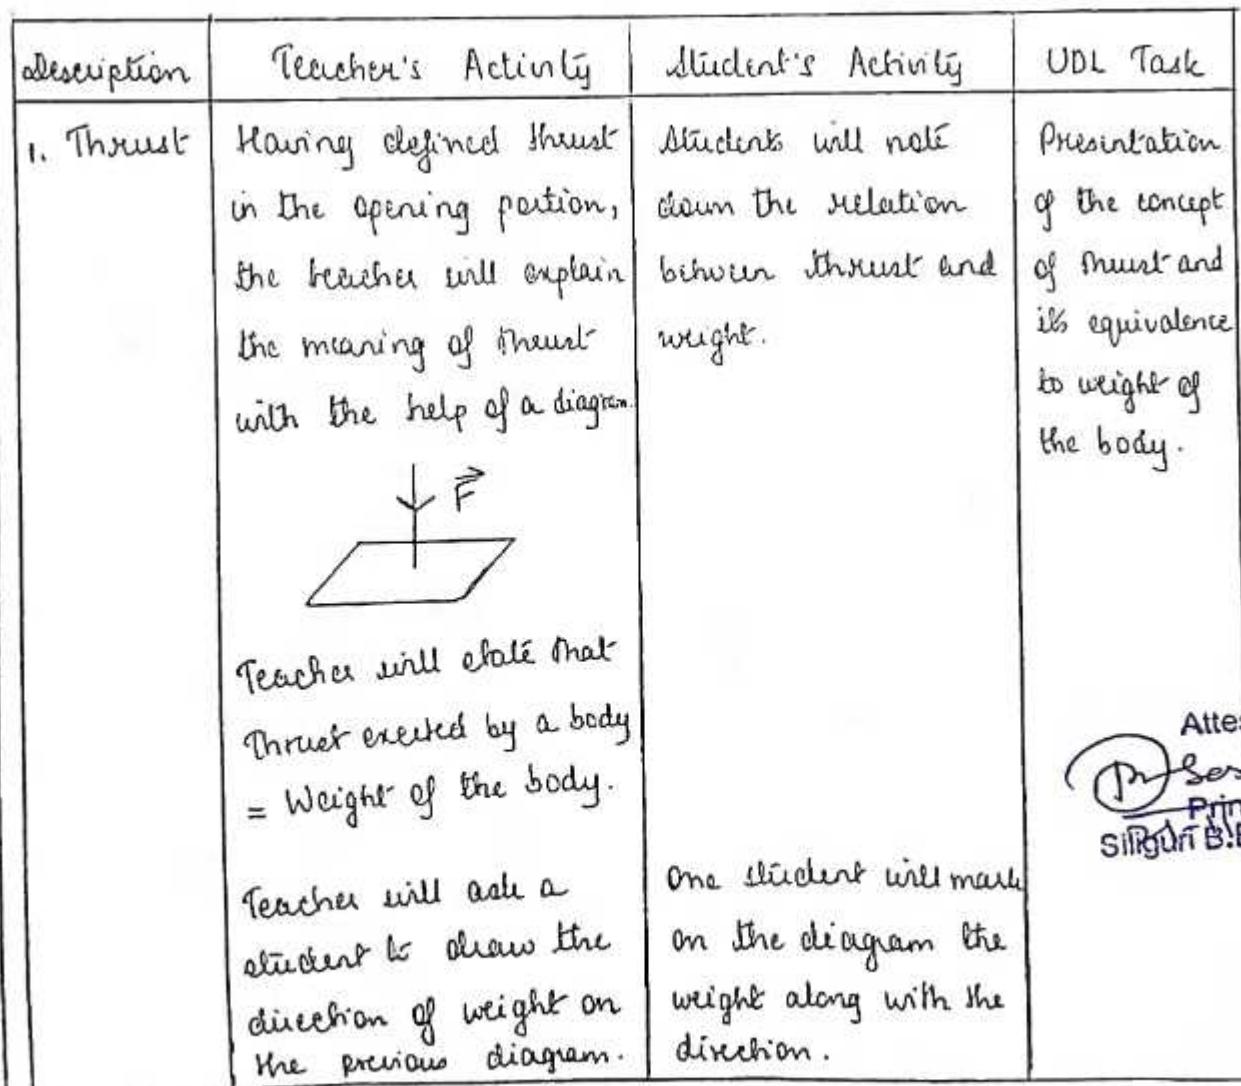 Description
Teacher's Activity
Student's Activity
UDL Task
1. Thrust
Having defined thrust
in the opening portion,
the teacher will explain
the meaning of thrust
with the help of a diagram.
F
Teacher will state that
Thrust exerted by a body
= Weight of the body.
Teacher will ask a
student to draw the
direction of weight on
the previous diagram.
Students will note
down the relation
between thrust and
weight.
One student will mark
on the diagram the
weight along with the
direction.
Presentation
of the concept
of thrust and
its equivalence
to weight of
the body.
Attes
Prin
Siliguri B.E